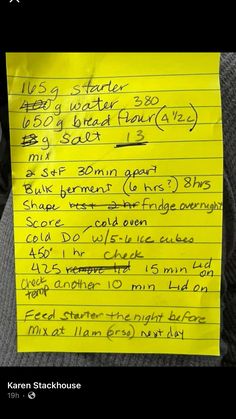 165g starter
400g water 380
650g bread flour (4 1/2 c)
13 g salt 13
mix
2 S&F 30 min apart
Bulk ferment (6 hrs?) 8 hrs
Shape rest 2 hr fridge overnight
Score cold oven
cold DO w/5-6 ice cubes
450° 1 hr check
425 remove lid 15 min Lid on
Check temp another 10 min Lid on
Feed starter the night before
Mix at 11am (or so) next day
Karen Stackhouse
19h ·